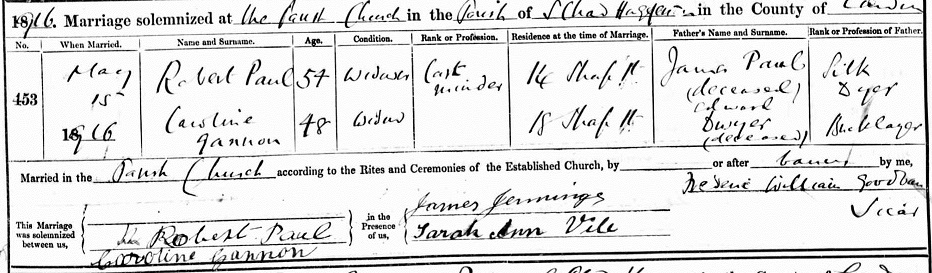 1916. Marriage solemnized at the Parish Church in the Parish of S. Chad Haggerston in the County of London
No. When Married. Name and Surname. Age. Condition. Rank or Profession. Residence at the time of Marriage. Father's Name and Surname. Rank or Profession of Father.
453 May 15 1916 Robert Paul 54 Widower minder 14 James Paul (deceased) Silk Dyer
Caroline Gannon 48 Widow 18 Edward Dwyer (deceased) Bricklayer
Married in the Parish Church according to the Rites and Ceremonies of the Established Church, by or after banns by me,
Frederic William Goodban
Vicar
This Marriage was solemnized between us, Robert Paul Caroline Gannon in the Presence of us, James Jennings Sarah Ann Vile